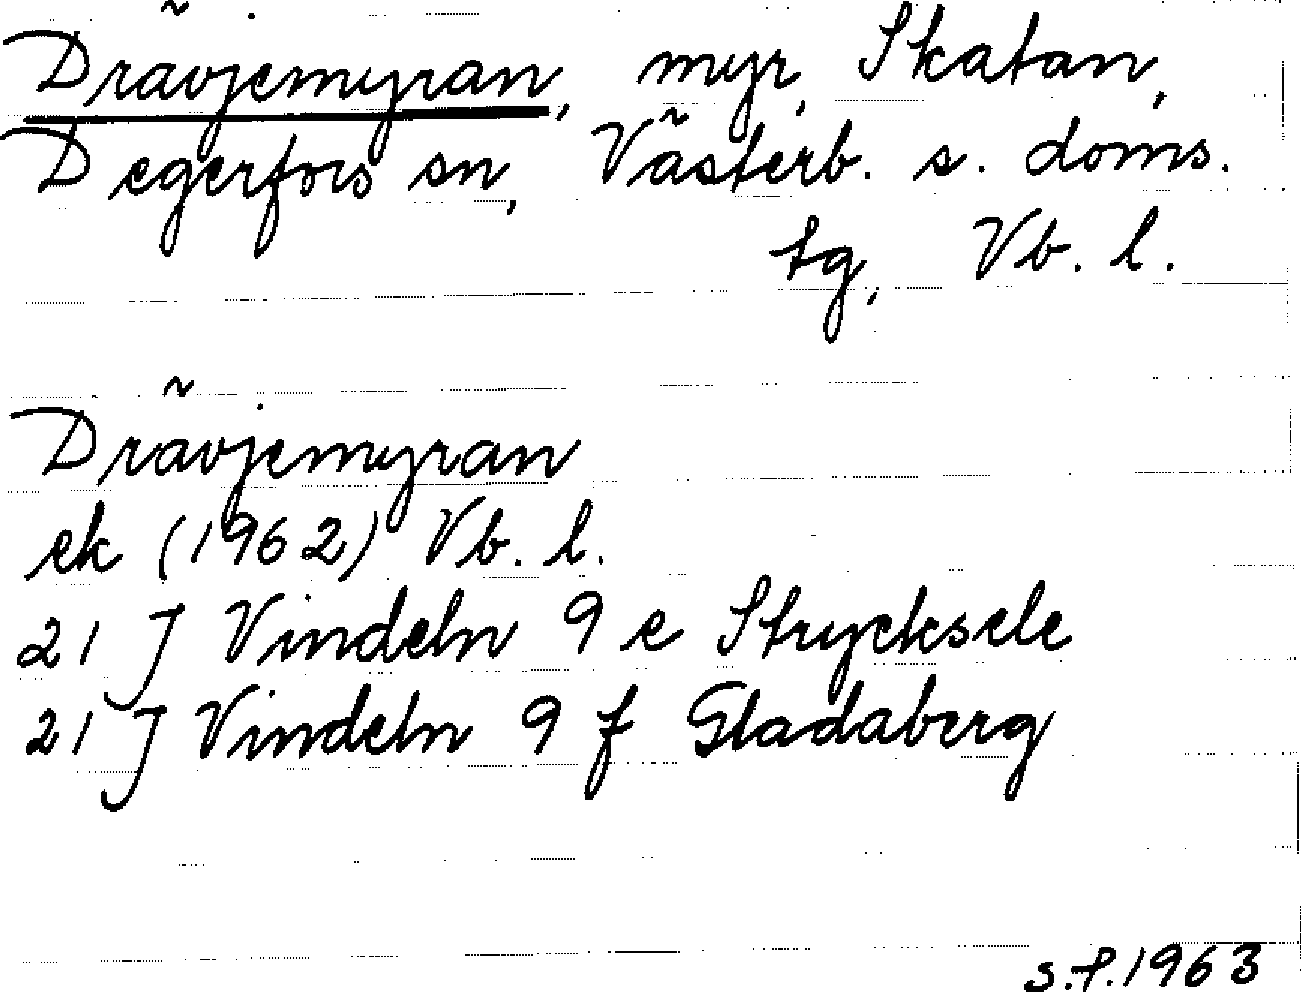 Drävjemyran, myr, Skatan,
Degerfors sn, Västerb. s. doms.
tg, Vb. l.
Drävjemyran
ek (1962) Vb. l.
21 J Vindeln 9 e Strycksele
21 J Vindeln 9 f Gladaberg
s.f. 1963